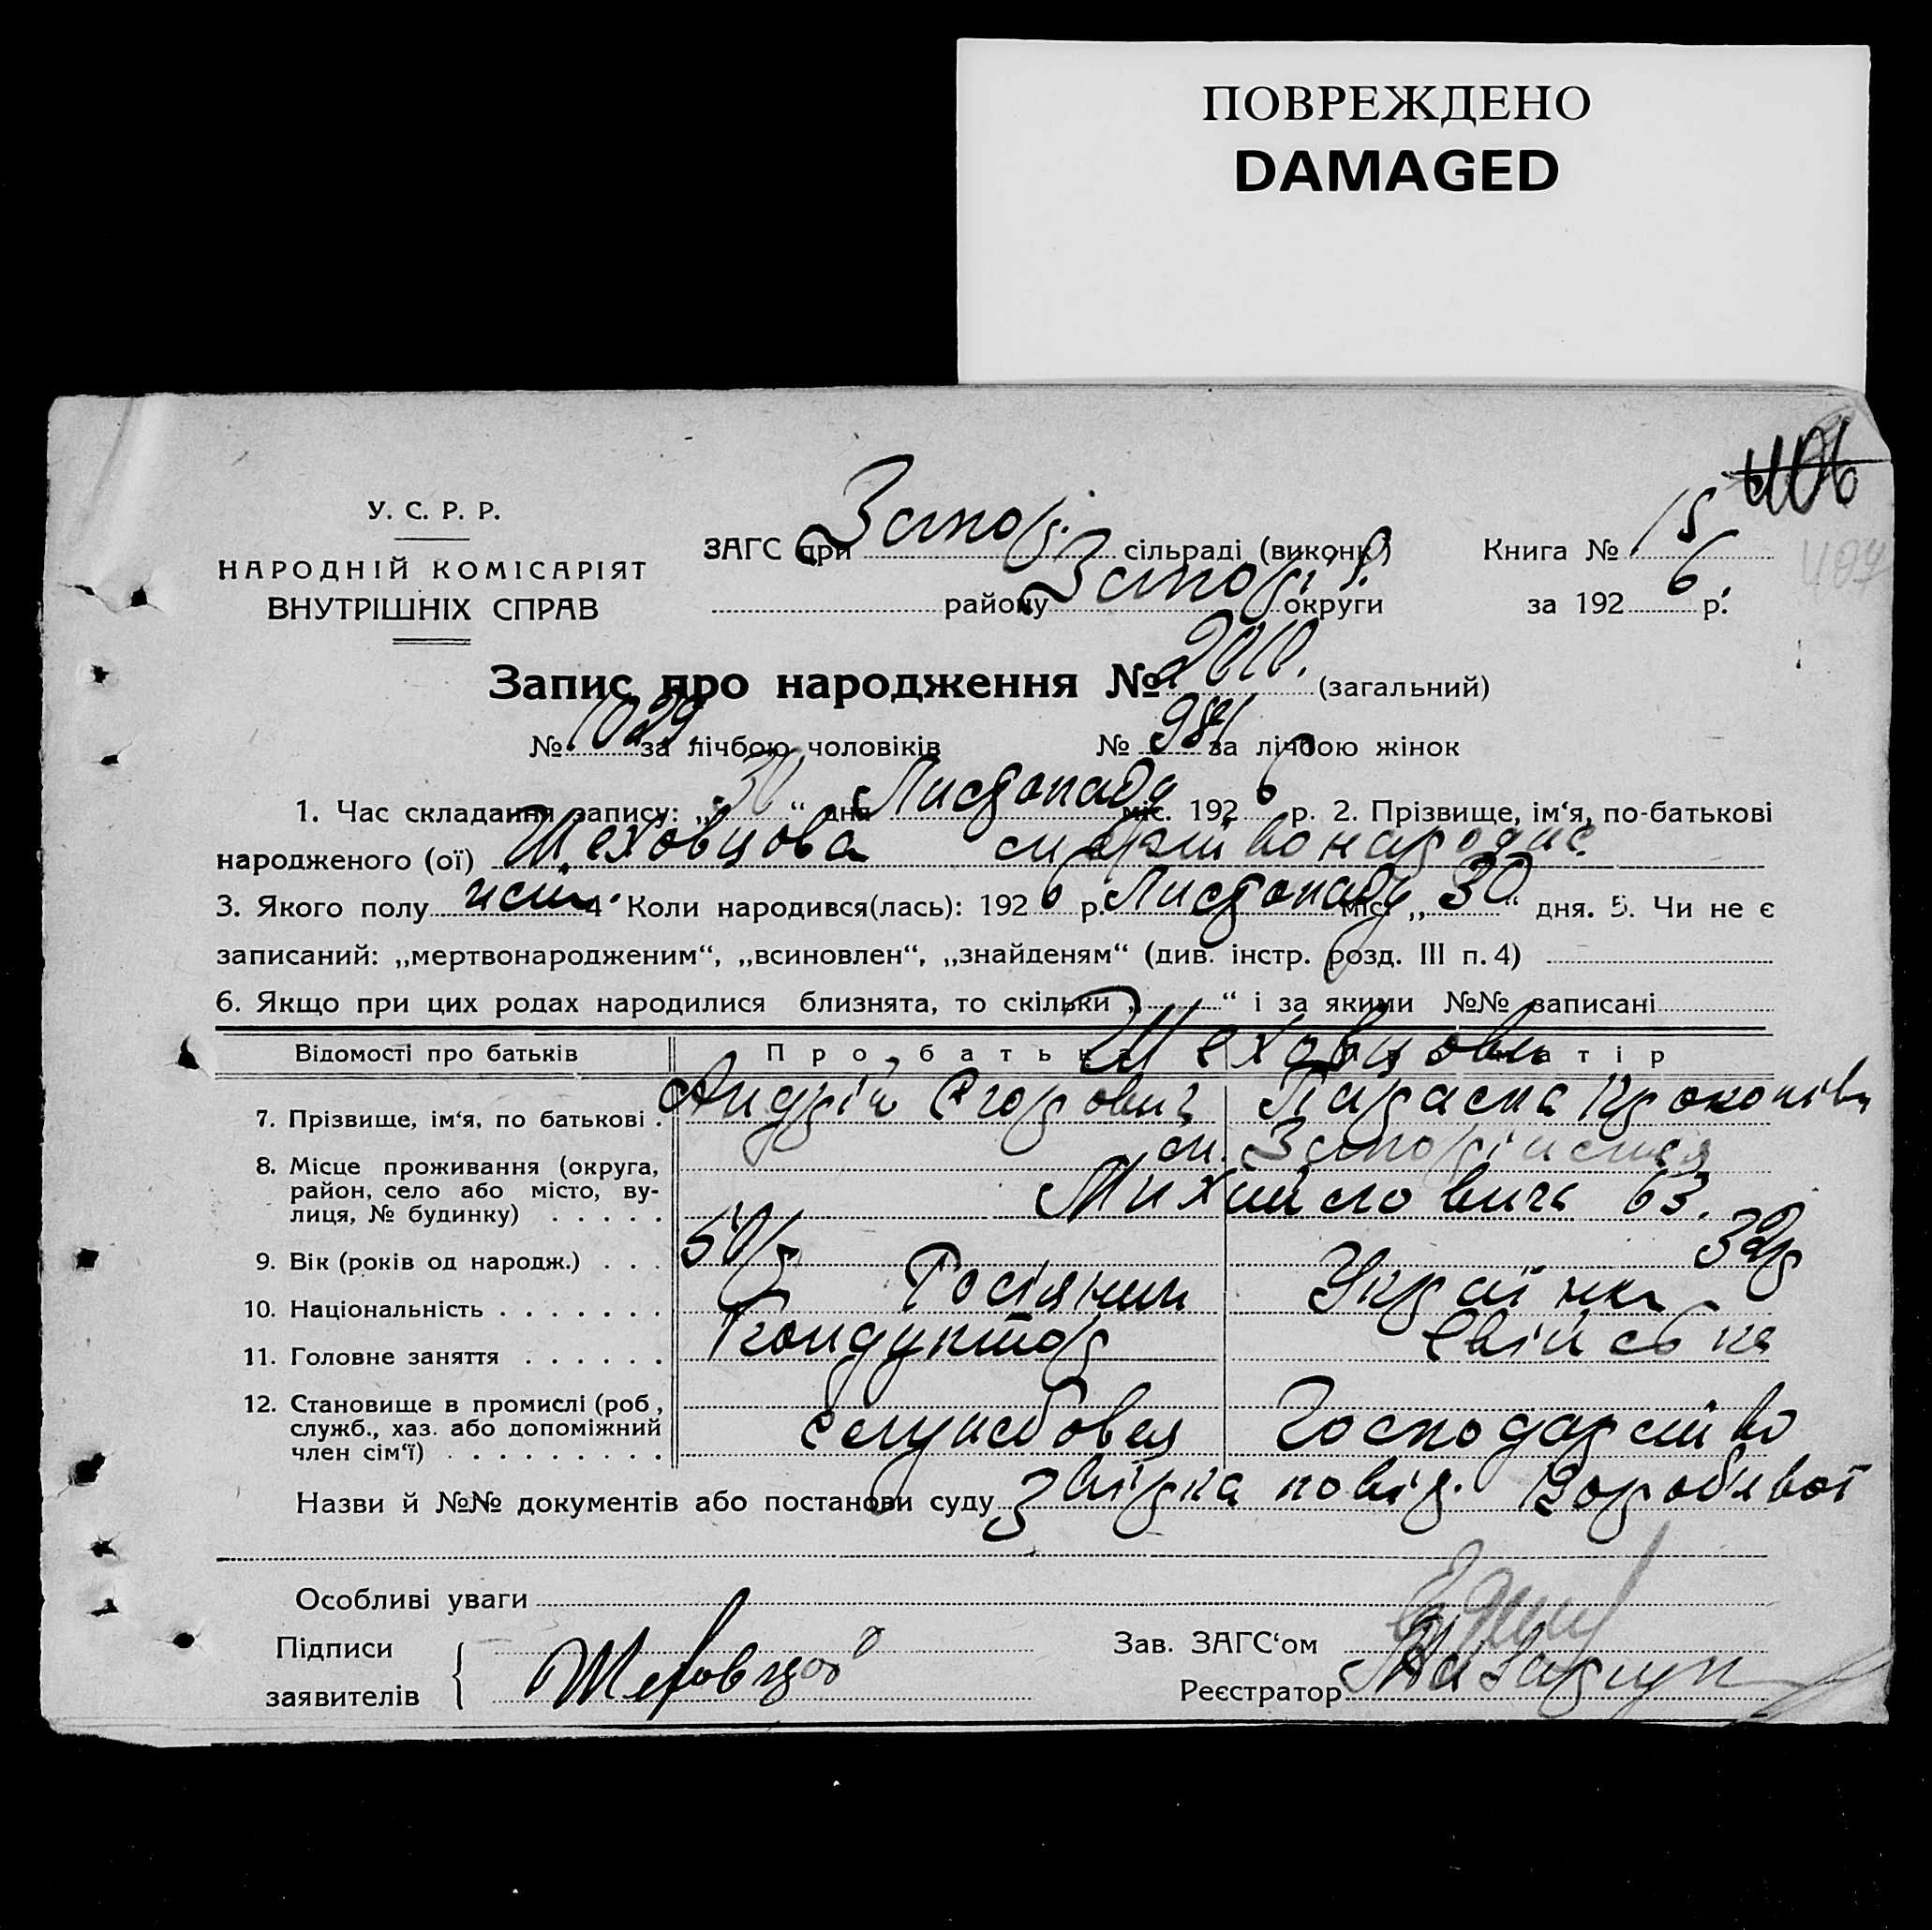 ПОВРЕЖДЕНО
DAMAGED
406
У. С. Р. Р.
НАРОДНІЙ КОМІСАРІЯТ
ВНУТРІШНІХ СПРАВ
ЗАГС при Запор. сільраді (виконк.) Книга № 15
району Запоріз. округи за 1926 р.
407
Запис про народження № 2010. (загальний)
№ 1029 за лічбою чоловіків № 981 за лічбою жінок
1. Час складання запису: „30“ дня Листопаду міс. 1926 р. 2. Прізвище, ім‘я, по-батькові
народженого (ої) Шеховцова мертвонародж.
3. Якого полу жін. 4. Коли народився(лась): 1926 р. Листопаду міс. „30“ дня. 5. Чи не є
записаний: „мертвонародженим“, „всиновлен“, „знайденям“ (див. інстр. розд. III п. 4)
6. Якщо при цих родах народилися близнята, то скільки „ “ і за якими №№ записані
Відомості про батьків Про батька Про матір
Шеховцови
7. Прізвище, ім‘я, по батькові . Андрій Єгорович Параска Прокопівн
8. Місце проживання (округа, район, село або місто, вулиця, № будинку) . . . . . м. Запоріжжя
Михайловича 63.
9. Вік (років од народж.) . . . 50р 32р
10. Національність . . . . . . . Росіянин Українка
11. Головне заняття . . . . . . Кондуктор Свійське
12. Становище в промислі (роб., служб., хаз. або допоміжний член сім‘ї) . . . . . . . . . службовец господарство
Назви й №№ документів або постанови суду Звірка повід. Воробйвої
Особливі уваги
Підписи
заявителів Шеховцов
Зав. ЗАГС‘ом
Реєстратор